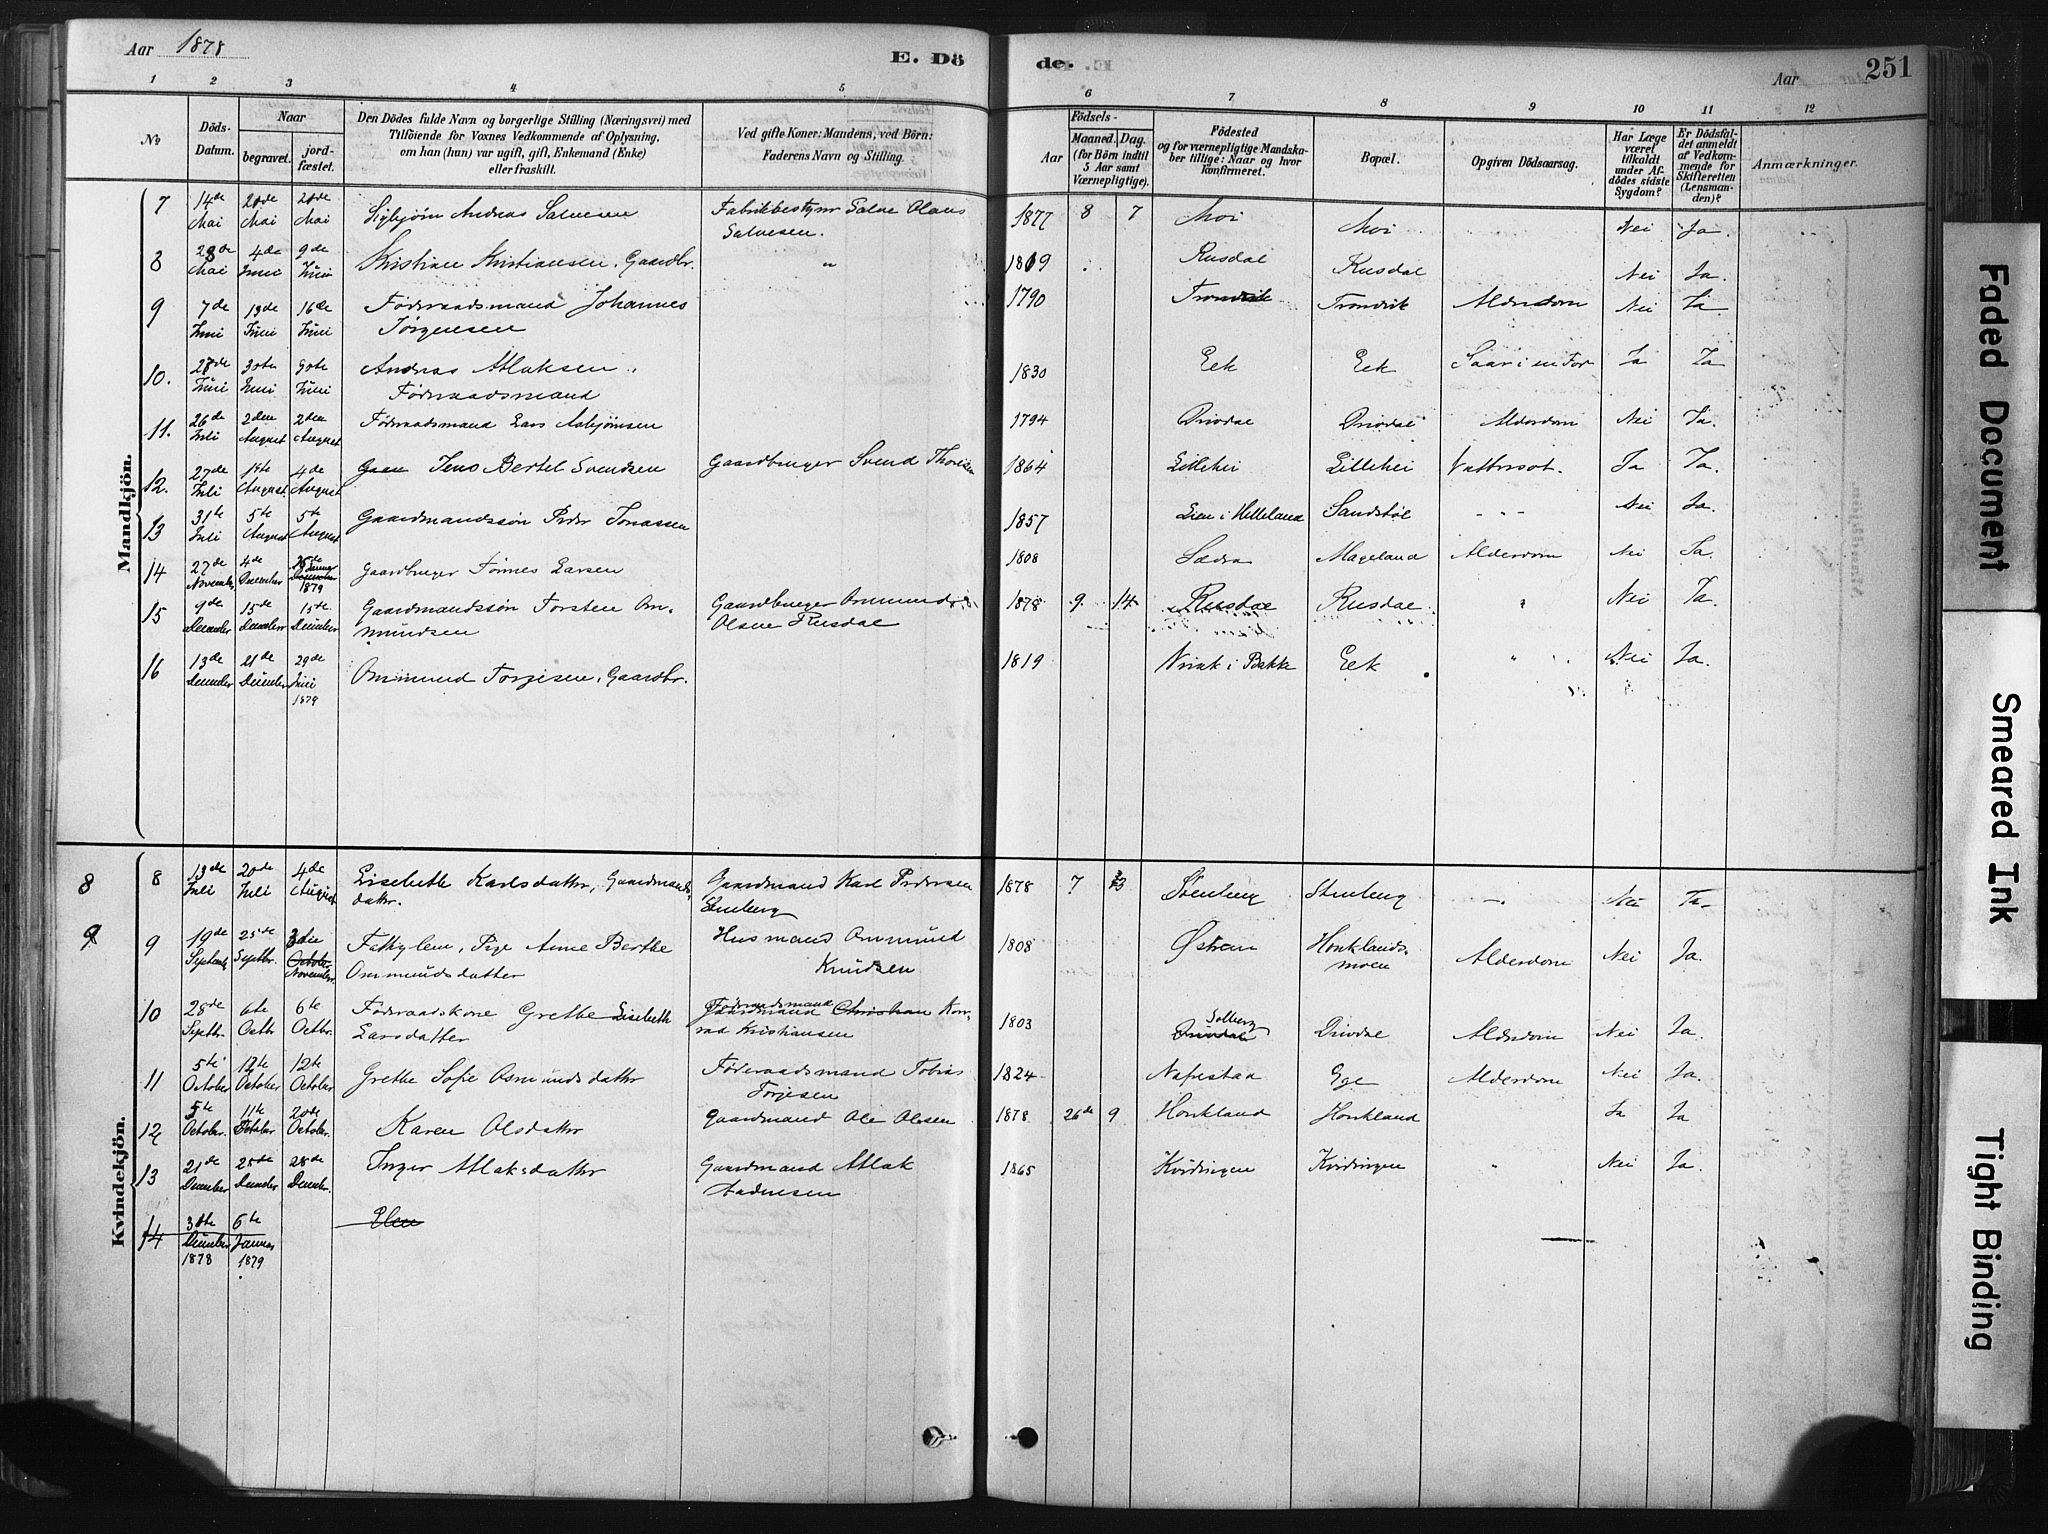 Aar 1878
E. Döde.
Aar
251
1 2 3 4 5 6 7 8 9 10 11 12
No
Döds-Datum.
Naar
begravet.
jordfæstet.
Den Dödes fulde Navn og borgerlige Stilling (Næringsvei) med
Tilföiende for Voxnes Vedkommende af Oplysning,
om han (hun) var ugift, gift, Enkemand (Enke)
eller fraskilt.
Ved gifte Koner: Mandens, ved Börn:
Faderens Navn og Stilling.
Födsels-
Aar
Maaned. Dag.
(for Börn indtil
5 Aar samt
Værnepligtige).
Födested
og for værnepligtige Mandskaber tillige: Naar og hvor
konfirmeret.
Bopæl.
Opgiven Dödsaarsag.
Har Læge
været
tilkaldt
under Afdödes sidste
Sygdom?
Er Dödsfaldet anmeldt
af Vedkommende for
Skifteretten
(Lensmanden)?
Anmærkninger.
Mandkjön.
7 14de 20de 20de Sigbjørn Andreas Salvesen Fabrikbestyrer Salve Olaus 1877 8 7 Moi Moi Nei Ja.
Mai Mai Mai Salvesen.
8 28de 4de 9de Kristian Kristiansen, Gaardbr. " 1809 Rusdal Rusdal Nei Ja.
Mai Juni Juni
9 7de 13de 16de Føderaadsmand Johannes 1790 Tronvik Tronvik Alderdom Nei Ja
Juni Juni Juni Jørgensen
10. 28de 30te 30te Andreas Atlaksen, 1830 Eek Eek Saar i en Fod Ja Ja
Juni Juni Juni Føderaadsmand
11. 26de 2den 2den Føderaadsmand Lars Asbjørnsen 1794 Drivdal Drivdal Alderdom Nei Ja.
Juli August August
12. 27de 1ste 4de Jens Bertel Svendsen Gaardbruger Svend Thorsen 1864 Lillehei Lillehei Vattersot. Ja Ja.
Juli August August
13 31te 5te 5te Gaardmandssøn Peder Jonassen 1857 Lien i Helleland Sandstøl - " - Nei Ja.
Juli August August
14 27de 4de Gaardbruger Tørres Larsen 1808 Ladra Mageland Alderdom Nei Ja.
November December 1879
15 9de 15de 15de Gaardmandssøn Torsten Om- Gaardbruger Ommund 1878 9. 14 Rusdal Rusdal " Nei Ja.
December December December mundsen Olsen Rusdal
16 13de 21de 29de Ommund Torgisen, Gaardbr. 1819 i Bakke Eek " Nei Ja.
December December Juni
1879
Kvindekjön.
8 8 13de 20de 4de Lisebeth Karlsdatter, Gaardmands- Gaardmand Karl Pedersen 1878 7 Stenberg Stenberg Nei Ja.
Juli Juli August datter. Stenberg
9 9 19de 25de 3die Fattiglem, Pige Anne Berthe Husmand Ommund 1808 Østrem Honklands- Alderdom Nei Ja.
Septemb. Septbr. October November Ommundsdatter Knudsen moen
10 28de 6te 6te Føderaadskone Grethe Lisebeth Føderaadsmand Gaardmand Christian Kon- 1803 Solberg Drivdal Drivdal Alderdom Nei Ja.
Septbr. Octbr Octbr. Larsdatter rad Kristiansen
11 5te 12te 12te Grethe Sofie Osmundsdatter Føderaadsmand Tobias 1824 Nafrestad Ege Alderdom Nei Ja.
October October October Torjesen
12 5te 11te 20de Karen Olsdatter Gaardmand Ole Olsen 1878 26de 9 Honkland Honkland Ja Ja
October. October October.
13 21de 28de 28de Inger Atlaksdatter Gaardmand Atlak 1865 Kvidringen Kvidringen " Nei Ja.
December December Decembr. Aadnesen
14 30te 6te Elen
December Januar
1878 1879
Faded Document
Smeared Ink
Tight Binding